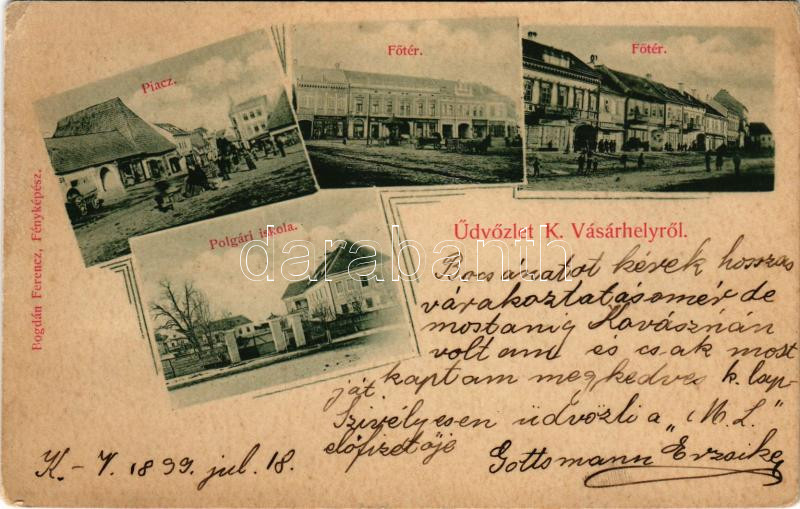 Piacz.
Főtér.
Főtér.
Polgári iskola.
Üdvözlet K. Vásárhelyről.
Bogdán Ferencz, Fényképész.
darabanth
Bocsánatot kérek hosszas
várakoztatásomér de
mostanig Kovásznán
voltam és csak most
kaptam meg kedves k. lap-
ját.
Szivélyesen üdvözli a „M. L."
előfizetője
Gottsmann Erzsike
K.-V. 1899. jul. 18.